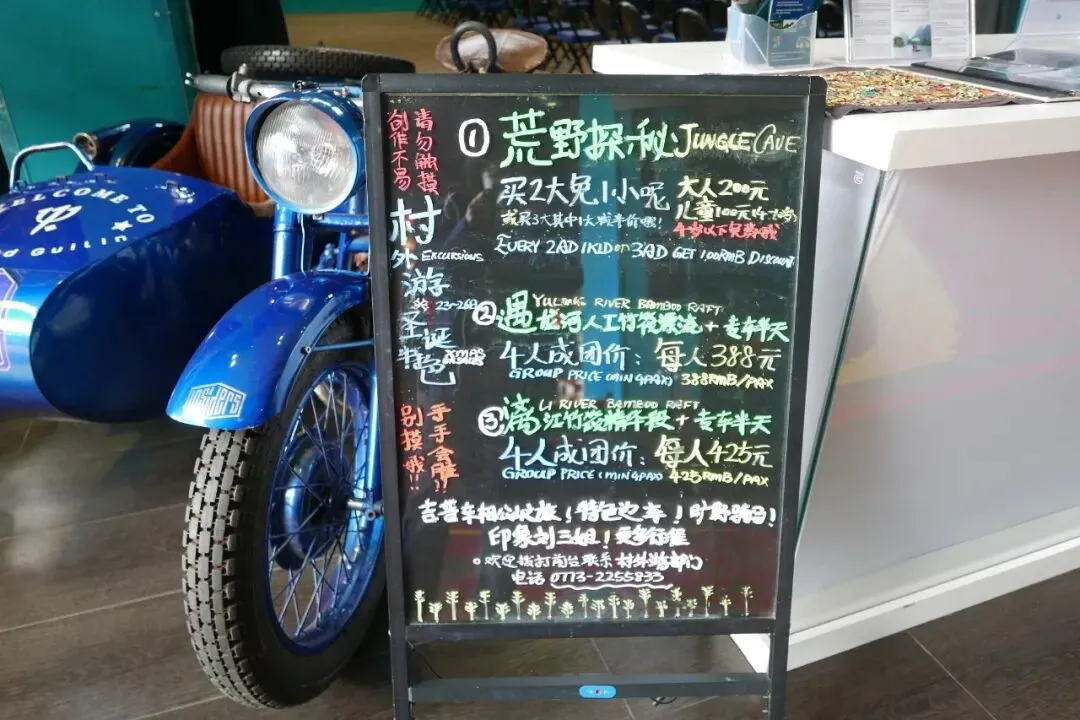 WELCOME TO
GUILIN
INSIDERS
请勿触摸
创作不易
村
外 EXCURSIONS
游
23-26日
圣诞
特色
手手会脏!!
别摸我!!
① 荒野探秘 JUNGLE CAVE
买2大免1小呢 大人200元
或买3大其中1大减半价哦! 儿童100元
4岁以下免费哦
EVERY 2AD 1KID or 3AD GET 100RMB DISCOUNT
YULONG RIVER BAMBOO RAFT
② 遇龙河人工竹筏漂流+专车半天
4人成团价: 每人388元
GROUP PRICE (MIN 4PAX) 388RMB/PAX
LI RIVER BAMBOO RAFT
③ 漓江竹筏精华段+专车半天
4人成团价: 每人425元
GROUP PRICE (MIN 4PAX) 425RMB/PAX
吉普车相公山之旅!特色边车!旷野骑马!
印象刘三姐!更多行程
欢迎拨打前台联系 村外游部门
电话 0773-2255833